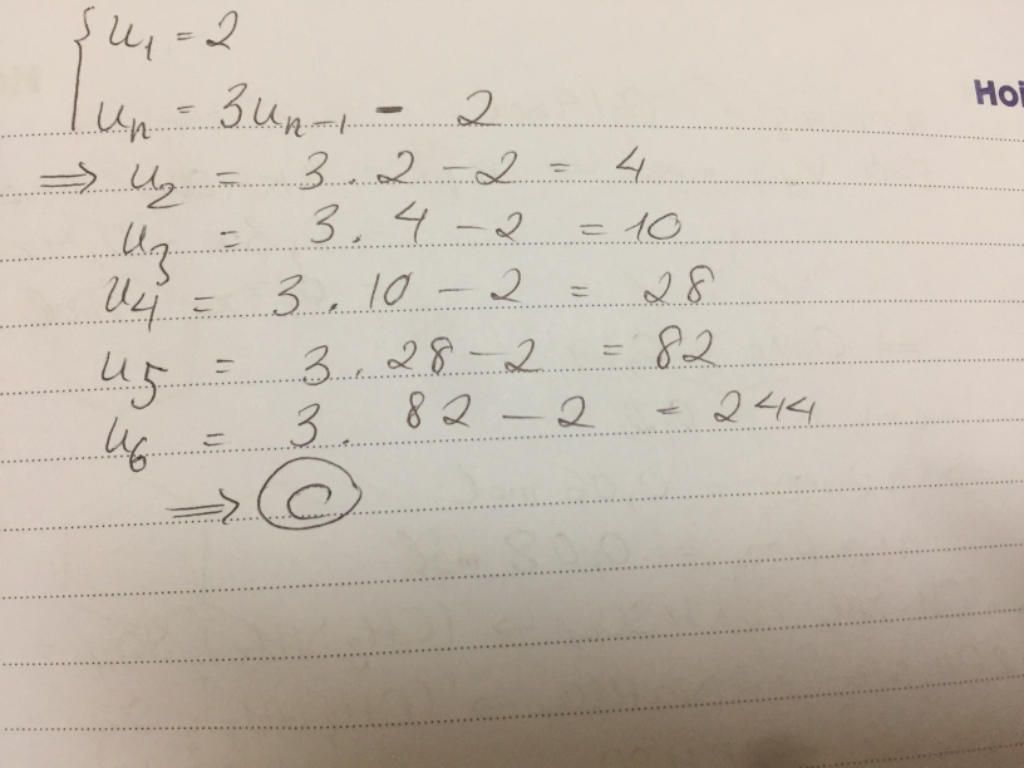 u₁ = 2
Hoi
uₙ = 3uₙ₋₁ - 2
⇒ u₂ = 3 . 2 - 2 = 4
u₃ = 3 . 4 - 2 = 10
u₄ = 3 . 10 - 2 = 28
u₅ = 3 . 28 - 2 = 82
u₆ = 3 . 82 - 2 = 244
⇒ C